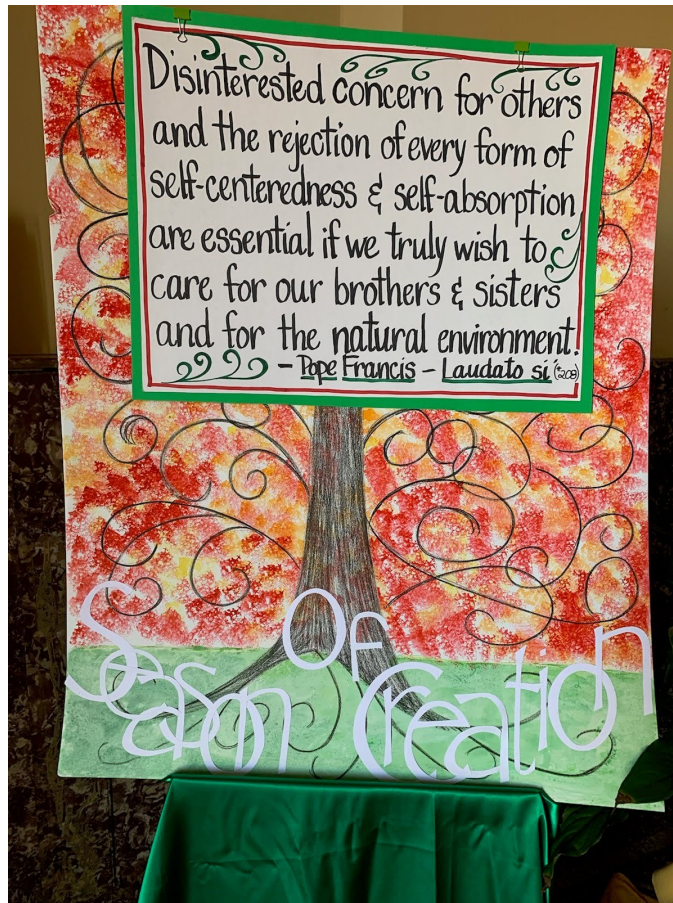 Disinterested concern for others
and the rejection of every form of
self-centeredness & self-absorption
are essential if we truly wish to
care for our brothers & sisters
and for the natural environment!
- Pope Francis - Laudato si (#208)
Season Of Creation